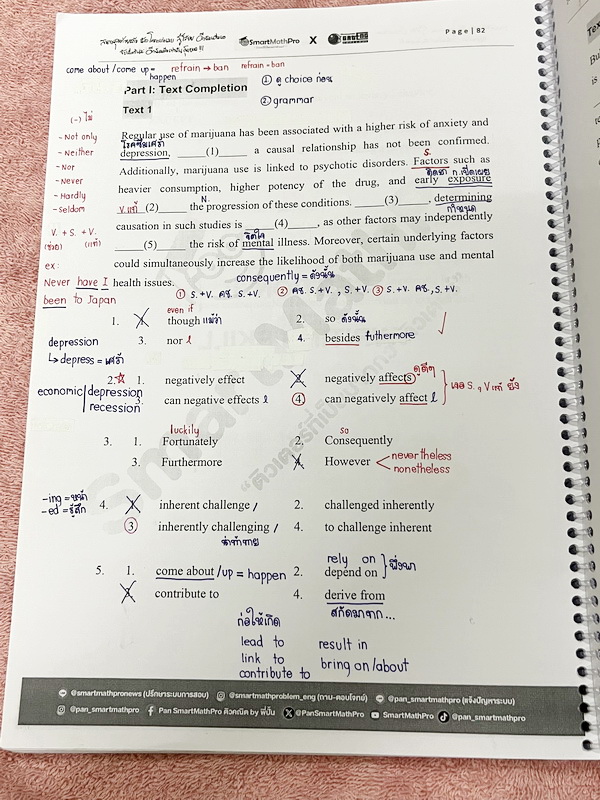 SmartMathPro X Page | 82
come about /come up = happen
refrain → ban
refrain = ban
① ดู choice ก่อน
Part I: Text Completion
② grammar
Text 1
(-) ไม่
- Not only
- Neither
- Nor
- Never
- Hardly
- Seldom
V. + S. + V.
(ช่วย) (แท้)
ex :
Never have I been to Japan
Regular use of marijuana has been associated with a higher risk of anxiety and
โรคซึมเศร้า
depression, _____(1)_____ a causal relationship has not been confirmed.
S.
Additionally, marijuana use is linked to psychotic disorders. Factors such as
heavier consumption, higher potency of the drug, and early exposure
V.แท้ N.
_____(2)_____ the progression of these conditions. _____(3)_____, determining
กำหนด
causation in such studies is _____(4)_____, as other factors may independently
จิตใจ
_____(5)_____ the risk of mental illness. Moreover, certain underlying factors
could simultaneously increase the likelihood of both marijuana use and mental
health issues.
consequently = ดังนั้น
① S.+V. คช. S.+V. ② คช. S.+V. , S.+V. ③ S.+V. คช , S.+V.
even if
1. 1. though แม้ว่า 2. so ดังนั้น
3. nor 4. besides futhermore
depression
↳ depress = เศร้า
2. ☆ 1. negatively effect 2. negatively affects
3. can negative effects 4. can negatively affect
economic depression
recession
luckily so
3. 1. Fortunately 2. Consequently
3. Furthermore 4. However
nevertheless
nonetheless
-ing = น่า
-ed = รู้สึก
4. 1. inherent challenge / 2. challenged inherently
3. inherently challenging / 4. to challenge inherent
น่าท้าทาย
rely on
5. 1. come about /up = happen 2. depend on พึ่งพา
3. contribute to 4. derive from
สกัดมาจาก...
ก่อให้เกิด
lead to result in
link to bring on/about
contribute to
@smartmathpronews (ปรึกษาระบบการสอบ) @smartmathproblem_eng (ถาม-ตอบโจทย์) @pan_smartmathpro (แจ้งปัญหาระบบ)
@pan_smartmathpro Pan SmartMathPro ติวคณิต by พี่ปั้น @PanSmartMathPro SmartMathPro @pan_smartmathpro